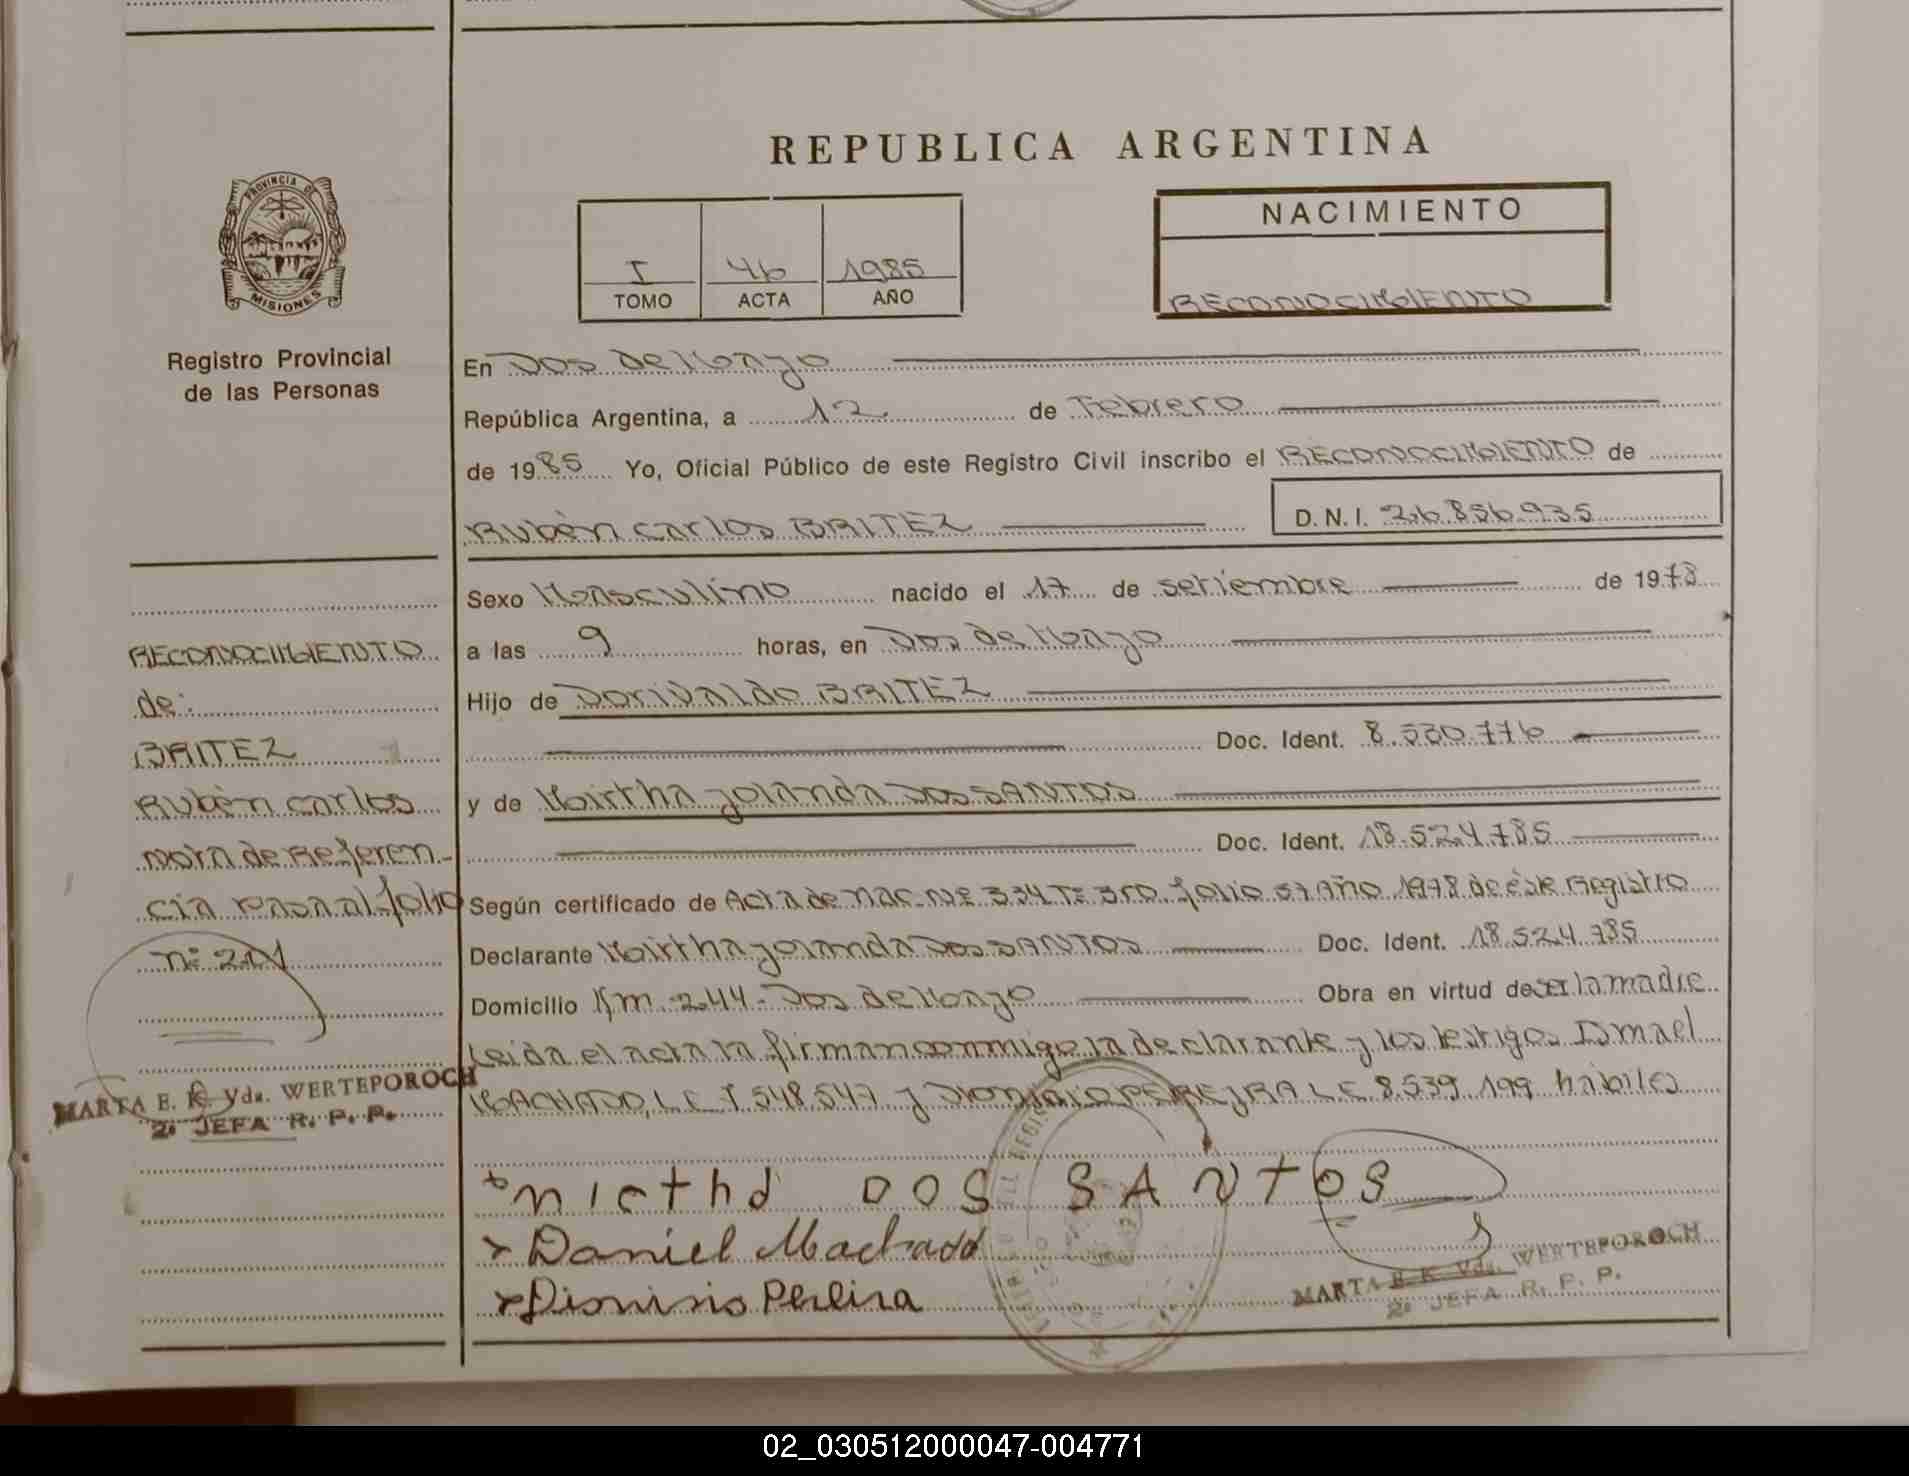 REPUBLICA ARGENTINA
PROVINCIA DE
MISIONES
Registro Provincial
de las Personas
I 46 1985
TOMO ACTA AÑO
NACIMIENTO
RECONOCIMIENTO
En Dos de Mayo
República Argentina, a 12 de Febrero
de 1985 Yo, Oficial Público de este Registro Civil inscribo el RECONOCIMIENTO de
Rubén Carlos BRITEZ D. N. I. 26.856.935
Sexo Masculino nacido el 17 de setiembre de 1978
a las 9 horas, en Dos de Mayo
Hijo de Dorivaldo BRITEZ
Doc. Ident. 8.530.776
y de Mirtha Yolanda DOS SANTOS
Doc. Ident. 18.524.785
Según certificado de Acta de Nac. Nº 334 Tº 3ro. folio 57 Año 1978 de éste Registro
Declarante Mirtha Yolanda DOS SANTOS Doc. Ident. 18.524.785
Domicilio Km. 244 - Dos de Mayo Obra en virtud de ser la madre
Leida el acta la firman conmigo la declarante y los testigos Ismael
MACHADO, L.E. 7.548.547 y Dionisio PEREYRA L.E. 8.539.199 hábiles
RECONOCIMIENTO
de:
BRITEZ
Rubén Carlos
Nota de Referen-
cia pasa al folio
nº 201
MARTA E. K. Vda. WERTEPOROCH
2ª JEFA R. P. P.
micthd DOS SANTOS
Daniel Machado
Dionisio Pereira
MARTA E. K. Vda. WERTEPOROCH
2ª JEFA R. P. P.
02_030512000047-004771